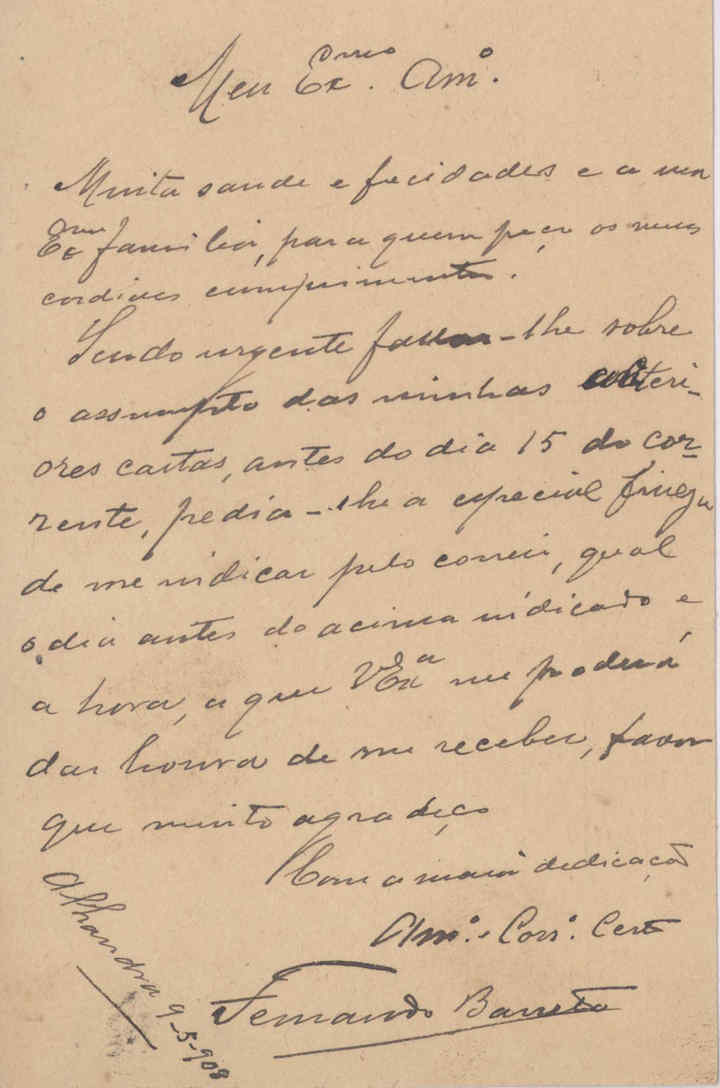 Meu Ex.mo Am.o
Muita saude e felicidades e a sua
Ex.ma familia, para quem peço os meus
cordiaes cumprimentos.
Sendo urgente fallar-lhe sobre
o assumpto das minhas anteri-
ores cartas, antes do dia 15 do cor-
rente, pedia-lhe a especial fineza
de me indicar pelo correio, qual
o dia antes do acima indicado e
a hora, a que V Ex.a me poderá
dar honra de me receber, favor
que muito agradeço
Com a maior dedicação
Am.o e Corr.o Certo
Fernando Barreto
Alhandra 9-5-908